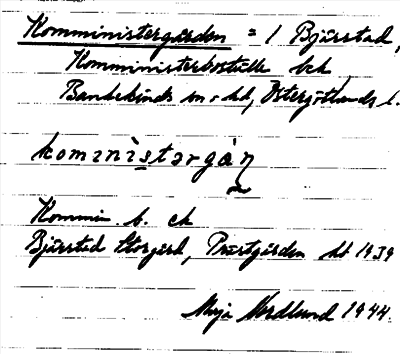 Komministergården = 1 Bjärstad,
Komministerboställe bek
Bankekinds sn o hd, Östergötlands l.
kominìstərgàṛ
Kommin. b. ek
Bjärstad Storgård, Prästgården hd 1939
Maja Nordlund 1944.